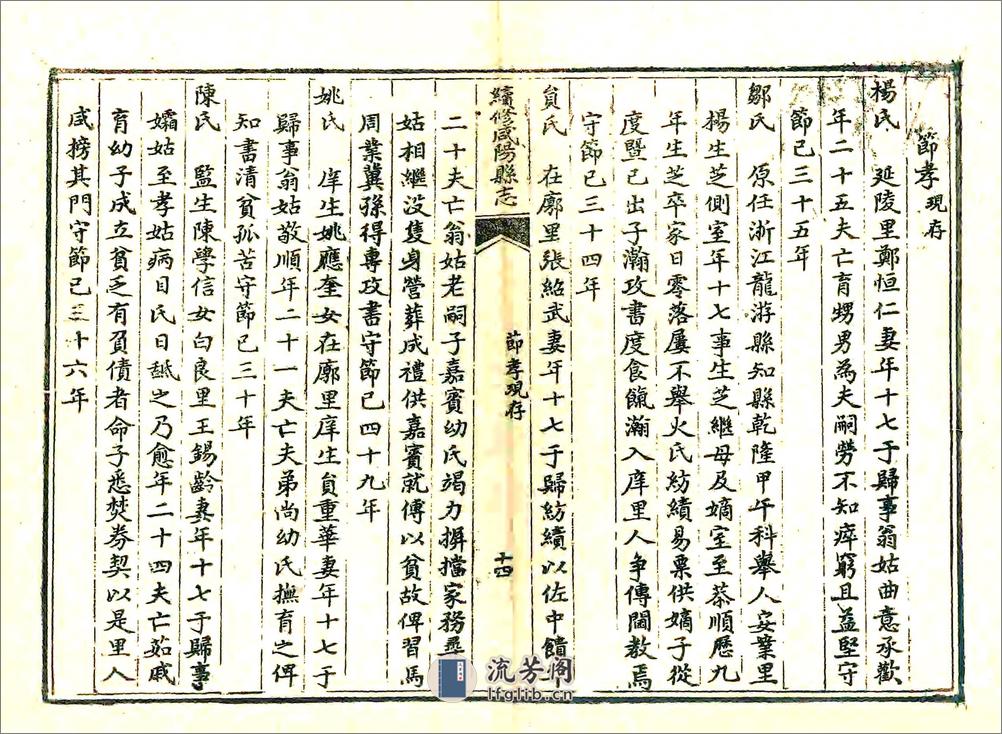 節孝現存
楊氏　延陵里鄭恒仁妻年十七于歸事翁姑曲意承歡
年二十五夫亡育甥男為夫嗣勞不知瘁窮且益堅守
節已三十五年
鄒氏　原任浙江龍游縣知縣乾隆甲午科舉人安業里
楊生芝側室年十七事生芝繼母及嫡室至恭順歷九
年生芝卒家日零落屢不舉火氏紡績易粟供嫡子從
度暨已出子瀚攻書度食餼瀚入庠里人争傳閫教焉
守節已三十四年
貟氏　在廓里張紹武妻年十七于歸紡績以佐中饋
續修咸陽縣志
節孝現存
十四
二十夫亡翁姑老嗣子嘉賓幼氏竭力摒擋家務
姑相繼没隻身營葬成禮供嘉賓就傅以貧故俾習焉
周業冀孫得專攻書守節已四十九年
姚氏　庠生姚應奎女在廓里庠生貟重華妻年十七于
歸事翁姑敬順年二十一夫亡夫弟尚幼氏撫育之俾
知書清貧孤苦守節已三十年
陳氏　監生陳學信女白良里王錫齡妻年十七于歸事
孀姑至孝姑病目氏日䑛之乃愈年二十四夫亡茹戚
育幼子成立貧乏有負債者命子悉焚券契以是里人
咸榜其門守節已三十六年
流芳阁
lfglib.cn